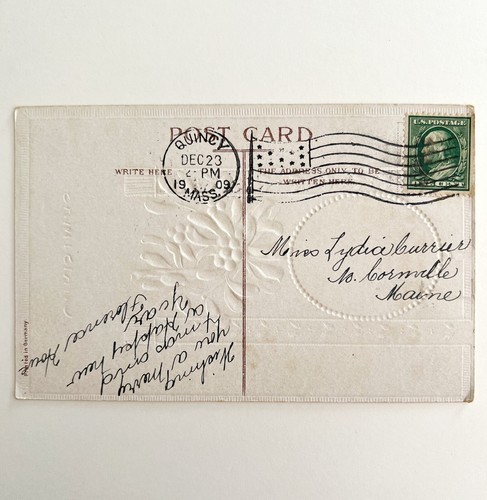 POST CARD
WRITE HERE
THE ADDRESS ONLY TO BE
WRITTEN HERE
QUINCY
DEC 23
2 - PM
1909
MASS.
U.S. POSTAGE
ONE CENT
Miss Lydia Currier
No. Cornville
Maine
Wishing
you a merry
xmas and
a Happy New
Year
Florence
Printed in Germany